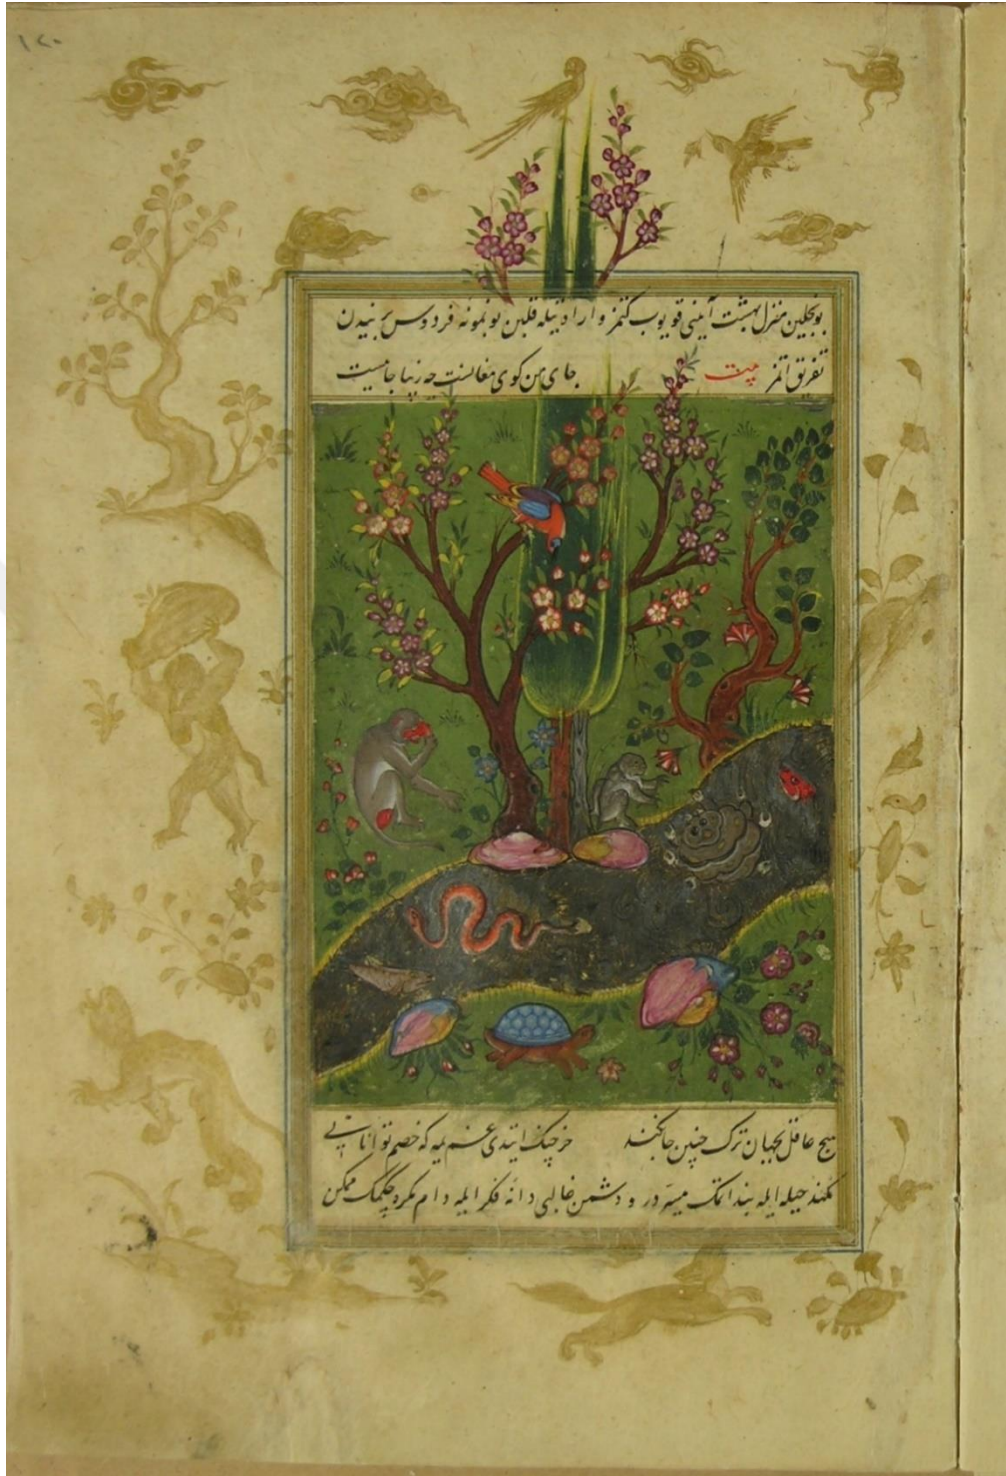 ۱۲۰
بو نجلین منزل بهشت آیینی قویوب کتمز و اراد تیله قلبن بو نمونه فردوس بریندن
تفریق اتمز بیت جای من کوی مغانست چه زیبا جاییست
هیچ عاقل بجهان ترک چنین جا نکند خرچنک ایتدی غم یمه که خصم توانا یی
کمند حیله ایله بند اتمک میسر در و دشمن غالبی دانه فکر ایله دام مکره چکمک ممکن